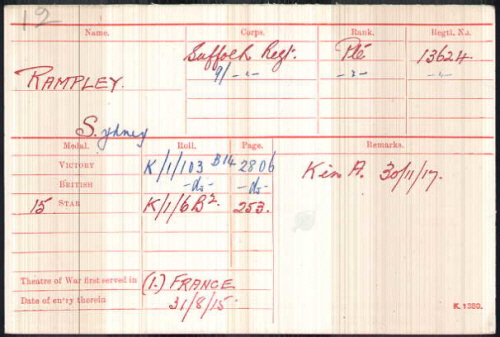 12
Name. Corps. Rank. Regtl. No.
Suffolk Regt. Pte 13624
RAMPLEY. 9/ -"- -"- -"-
Sydney
Medal. Roll. Page. Remarks.
VICTORY K/1/103 B14 2806 Kin A. 30/11/17.
BRITISH -do- -do-
15 STAR K/1/6B2. 253.
Theatre of War first served in (1.) FRANCE
Date of entry therein 31/8/15.
K. 1380.